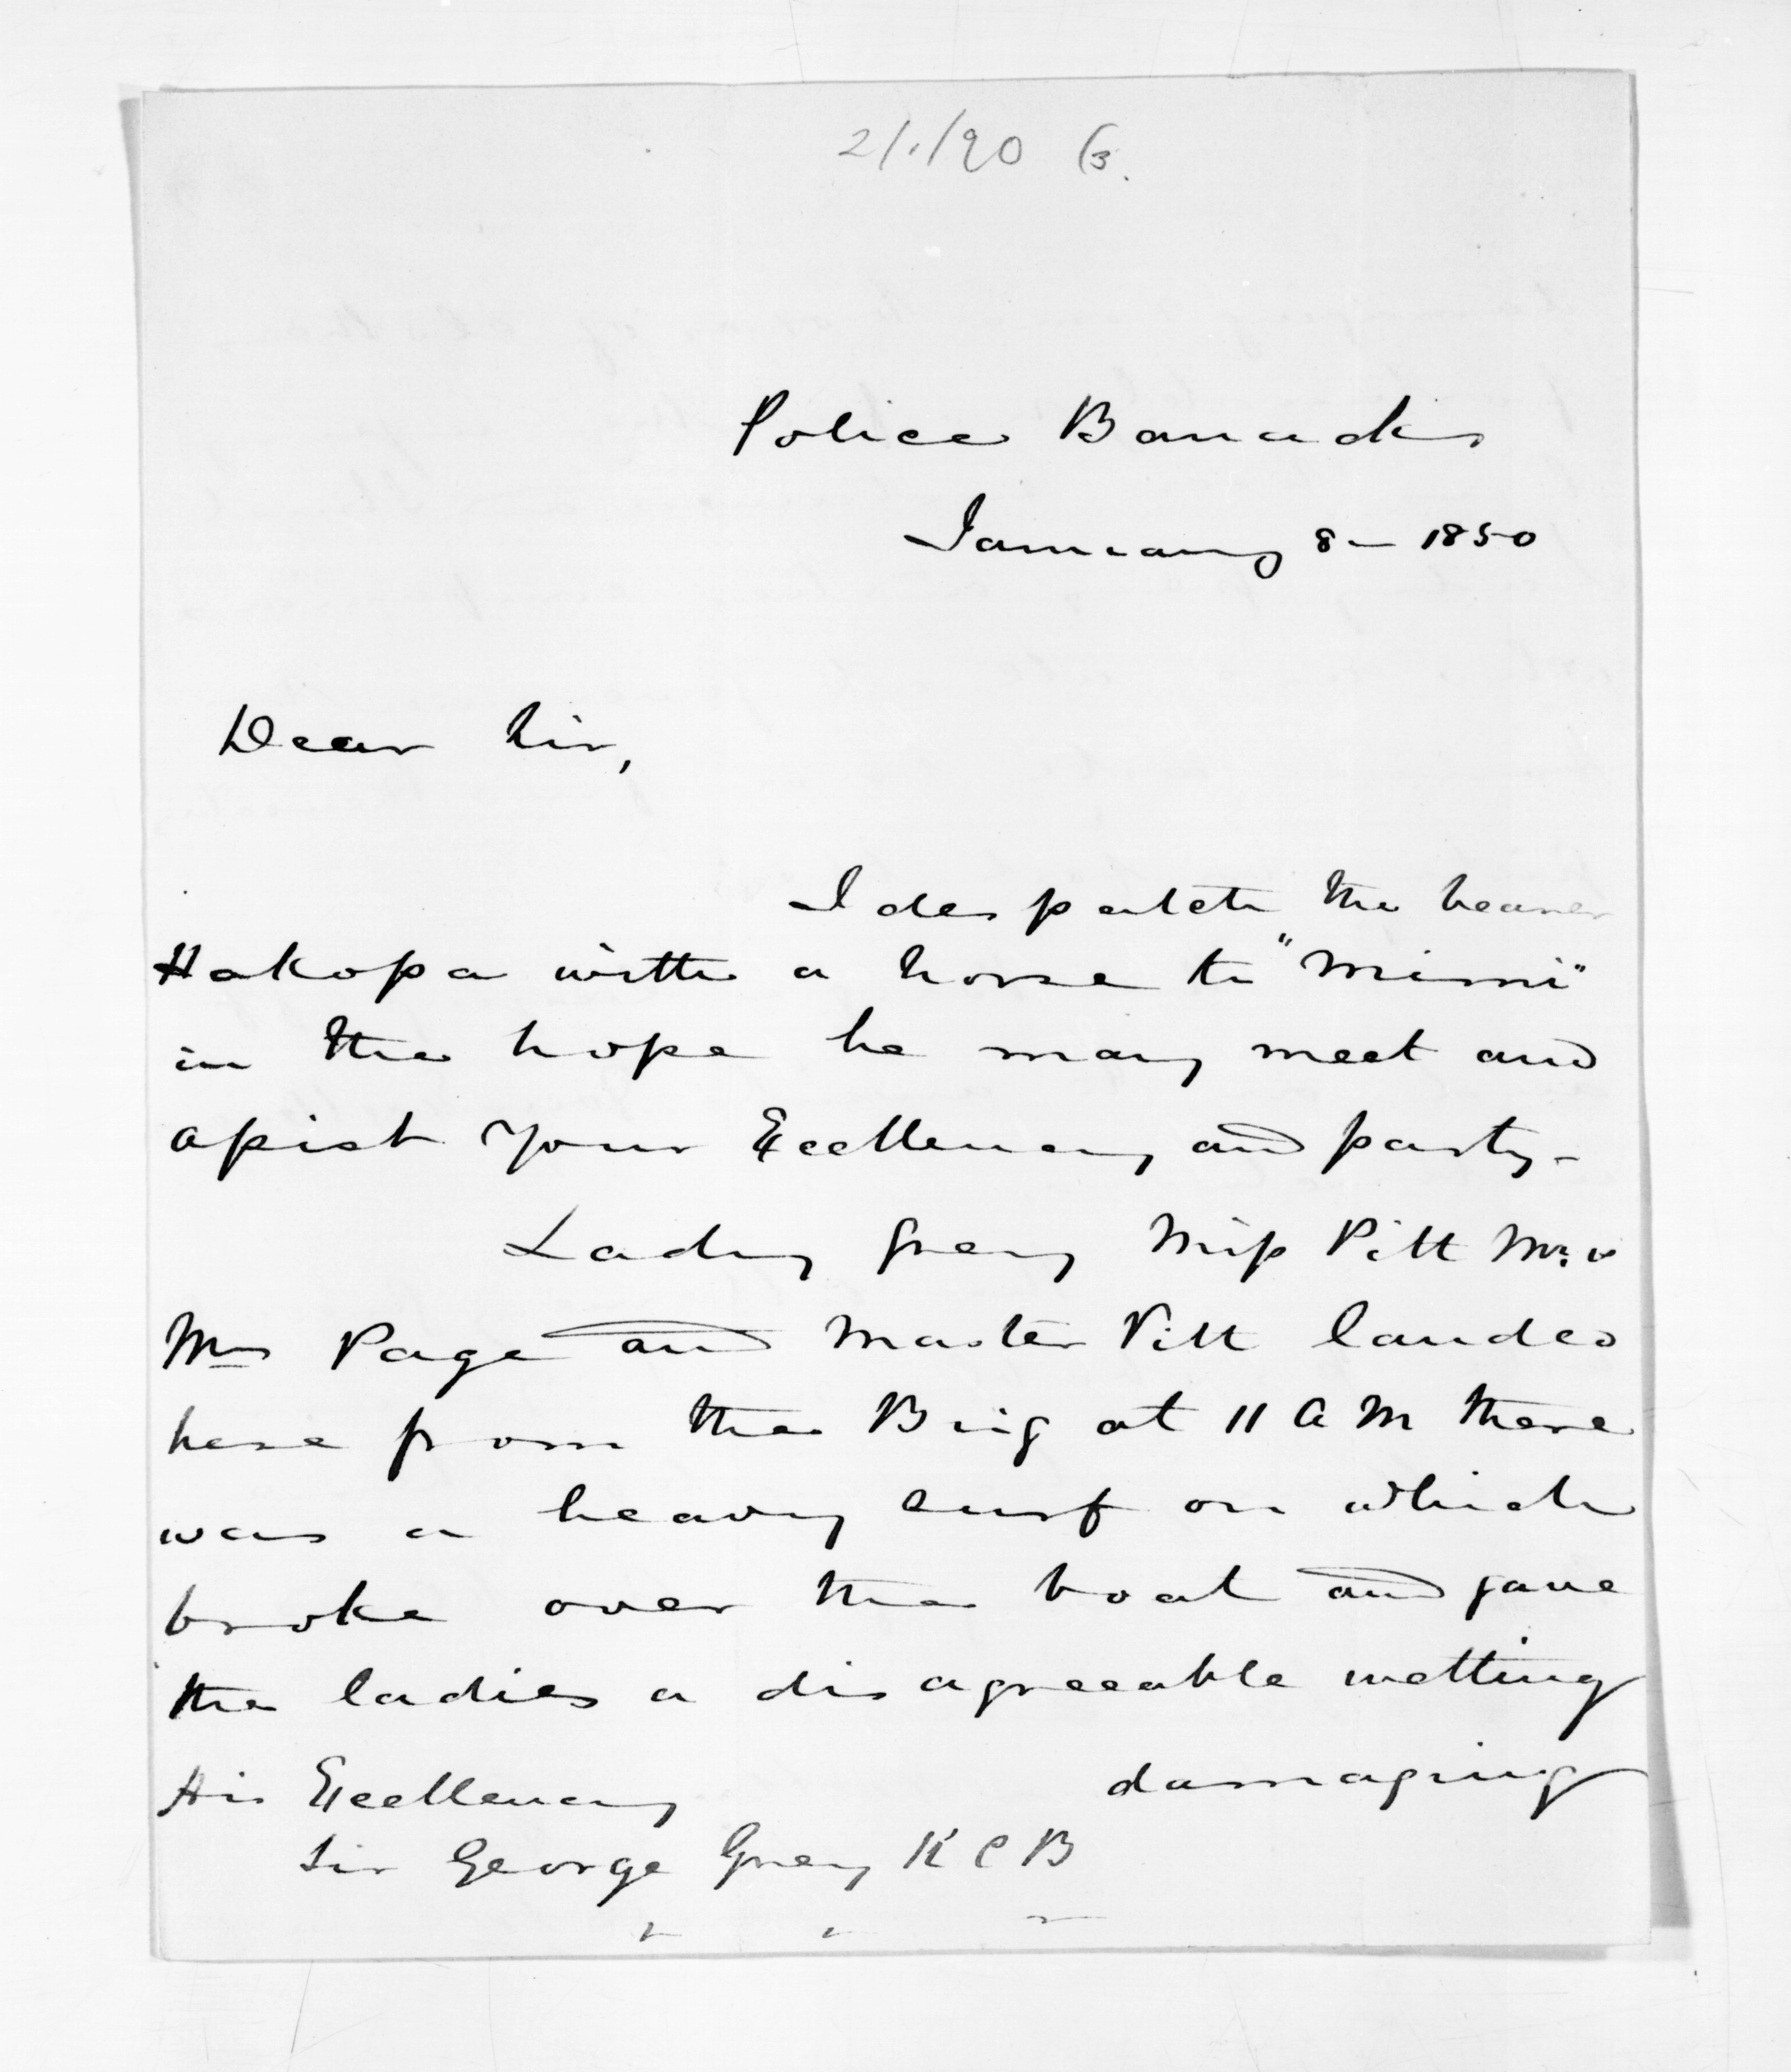 2/1/90 (3.
Police Barracks
January 8 - 1850
Dear Sir,
I despatch the bearer
Hakopa with a horse to "Mimi"
in the hope he may meet and
assist Your Excellency and party -
Lady Grey Miss Pitt Mr. &
Mrs Page and Master Pitt landed
here from the Brig at 11 A M there
was a heavy surf on which
broke over the boat and gave
the ladies a disagreeable wetting
damaging
His Excellency
Sir George Grey K C B